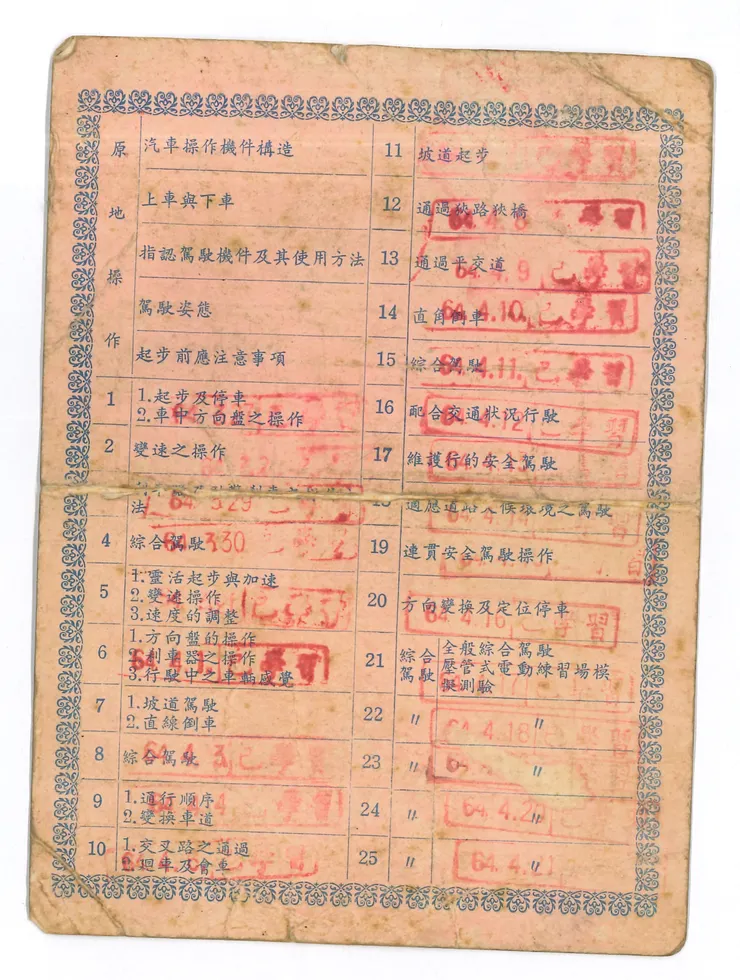 原地操作
汽車操作機件構造
上車與下車
指認駕駛機件及其使用方法
駕駛姿態
起步前應注意事項
1
1.起步及停車
2.車中方向盤之操作
2
變速之操作
法
64 3.29
4
綜合駕駛
64 3.30
5
1.靈活起步與加速
2.變速操作
3.速度的調整
6
1.方向盤的操作
2.剎車器之操作
3.行駛中之車輛感覺
7
1.坡道駕駛
2.直線倒車
8
綜合駕駛
64 4 3 已學習
9
1.通行順序
2.變換車道
10
1.交叉路之通過
2.迴車及會車
11
坡道起步
12
通過狹路狹橋
13
通過平交道
64.4.9 已學習
14
直角倒車
64.4.10. 已學習
15
綜合駕駛
64.4.11. 已學習
16
配合交通狀況行駛
64.4.12 已學習
17
維護行的安全駕駛
18
適應道路天候環境之駕駛
19
連貫安全駕駛操作
20
方向變換及定位停車
64.4.16 已學習
21
綜合駕駛
全般綜合駕駛
壓管式電動練習場模
擬測驗
22
〃
〃
64.4.18 已學習
23
〃
〃
24
〃
〃
64.4.20
25
〃
〃
64.4.21